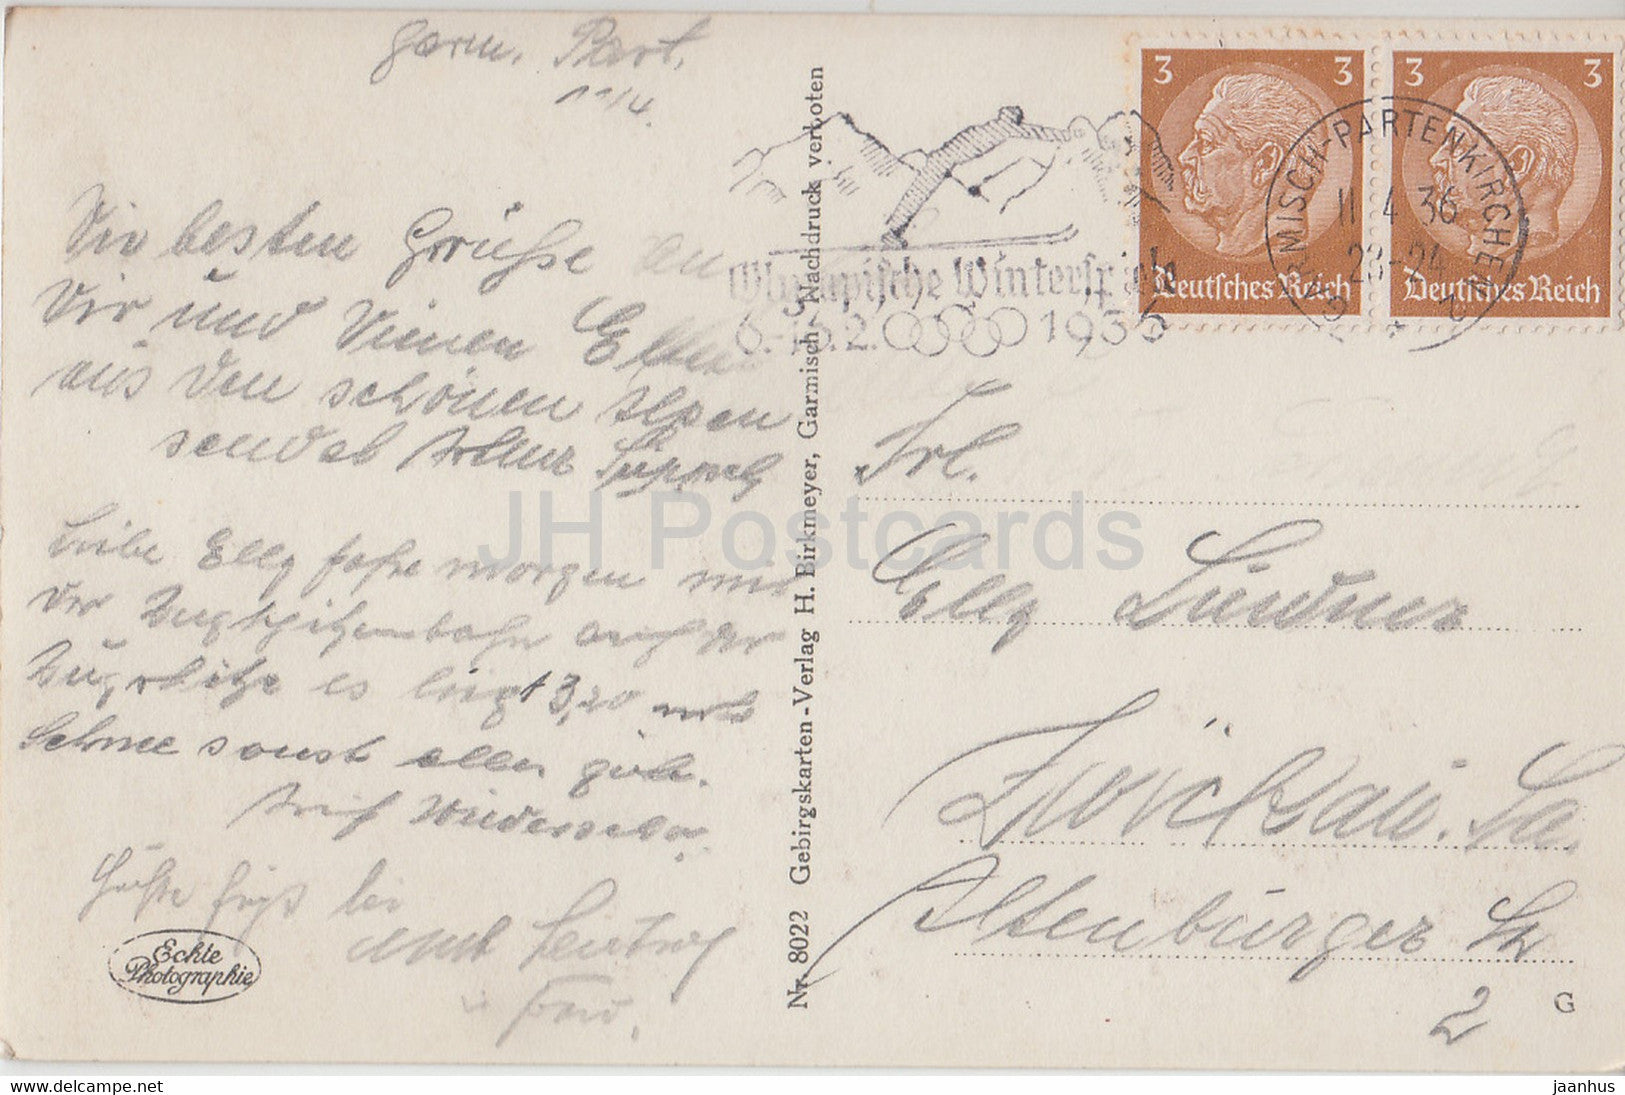 Garm. Part.
11/4.
Dir besten Grüsse an
Dir und Deinen Eltern
aus den schönen Alpen
sendet Arthur
Liebe Elly fahre morgen mit
der Zugspitzenbahn auf der
Zugspitze es liegt 3,20 mtr
Schnee sonst alles gut.
Auf Wiedersehn.
Grüße
und
Frau.
Echte
Photographie
Nr. 8022 Gebirgskarten-Verlag H. Birkmeyer, Garmisch, Nachdruck verboten
Olympische Winterspiele
6.-16.2. 1936
3 3
Deutsches Reich
3 3
Deutsches Reich
GARMISCH-PARTENKIRCHEN
11.4.36
23-24
Frl.
Elly Lindner
Zwickau. Sa.
Altenburger Str
2
G
JH Postcards
jaanhus